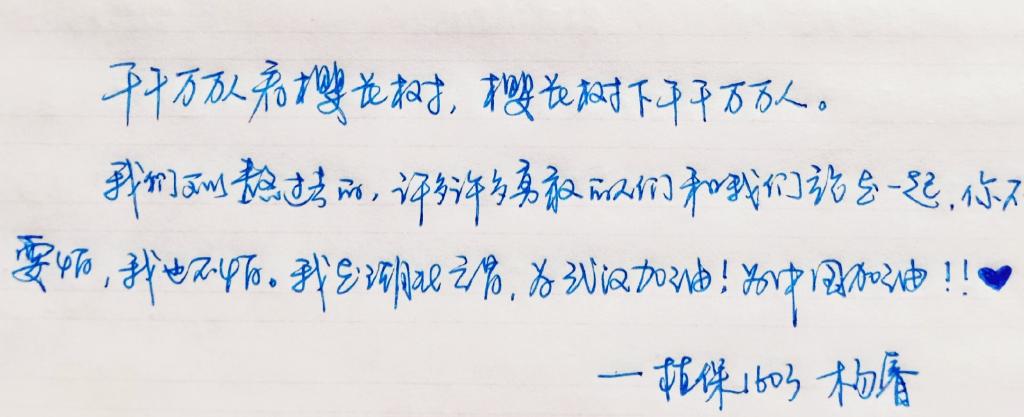 千千万万人看樱花树，樱花树下千千万万人。
我们可以熬过去的，许多许多勇敢的人们和我们站在一起，你不
要怕，我也不怕。我在湖北云梦，为武汉加油！为中国加油！！♥
—植保1603 杨眉